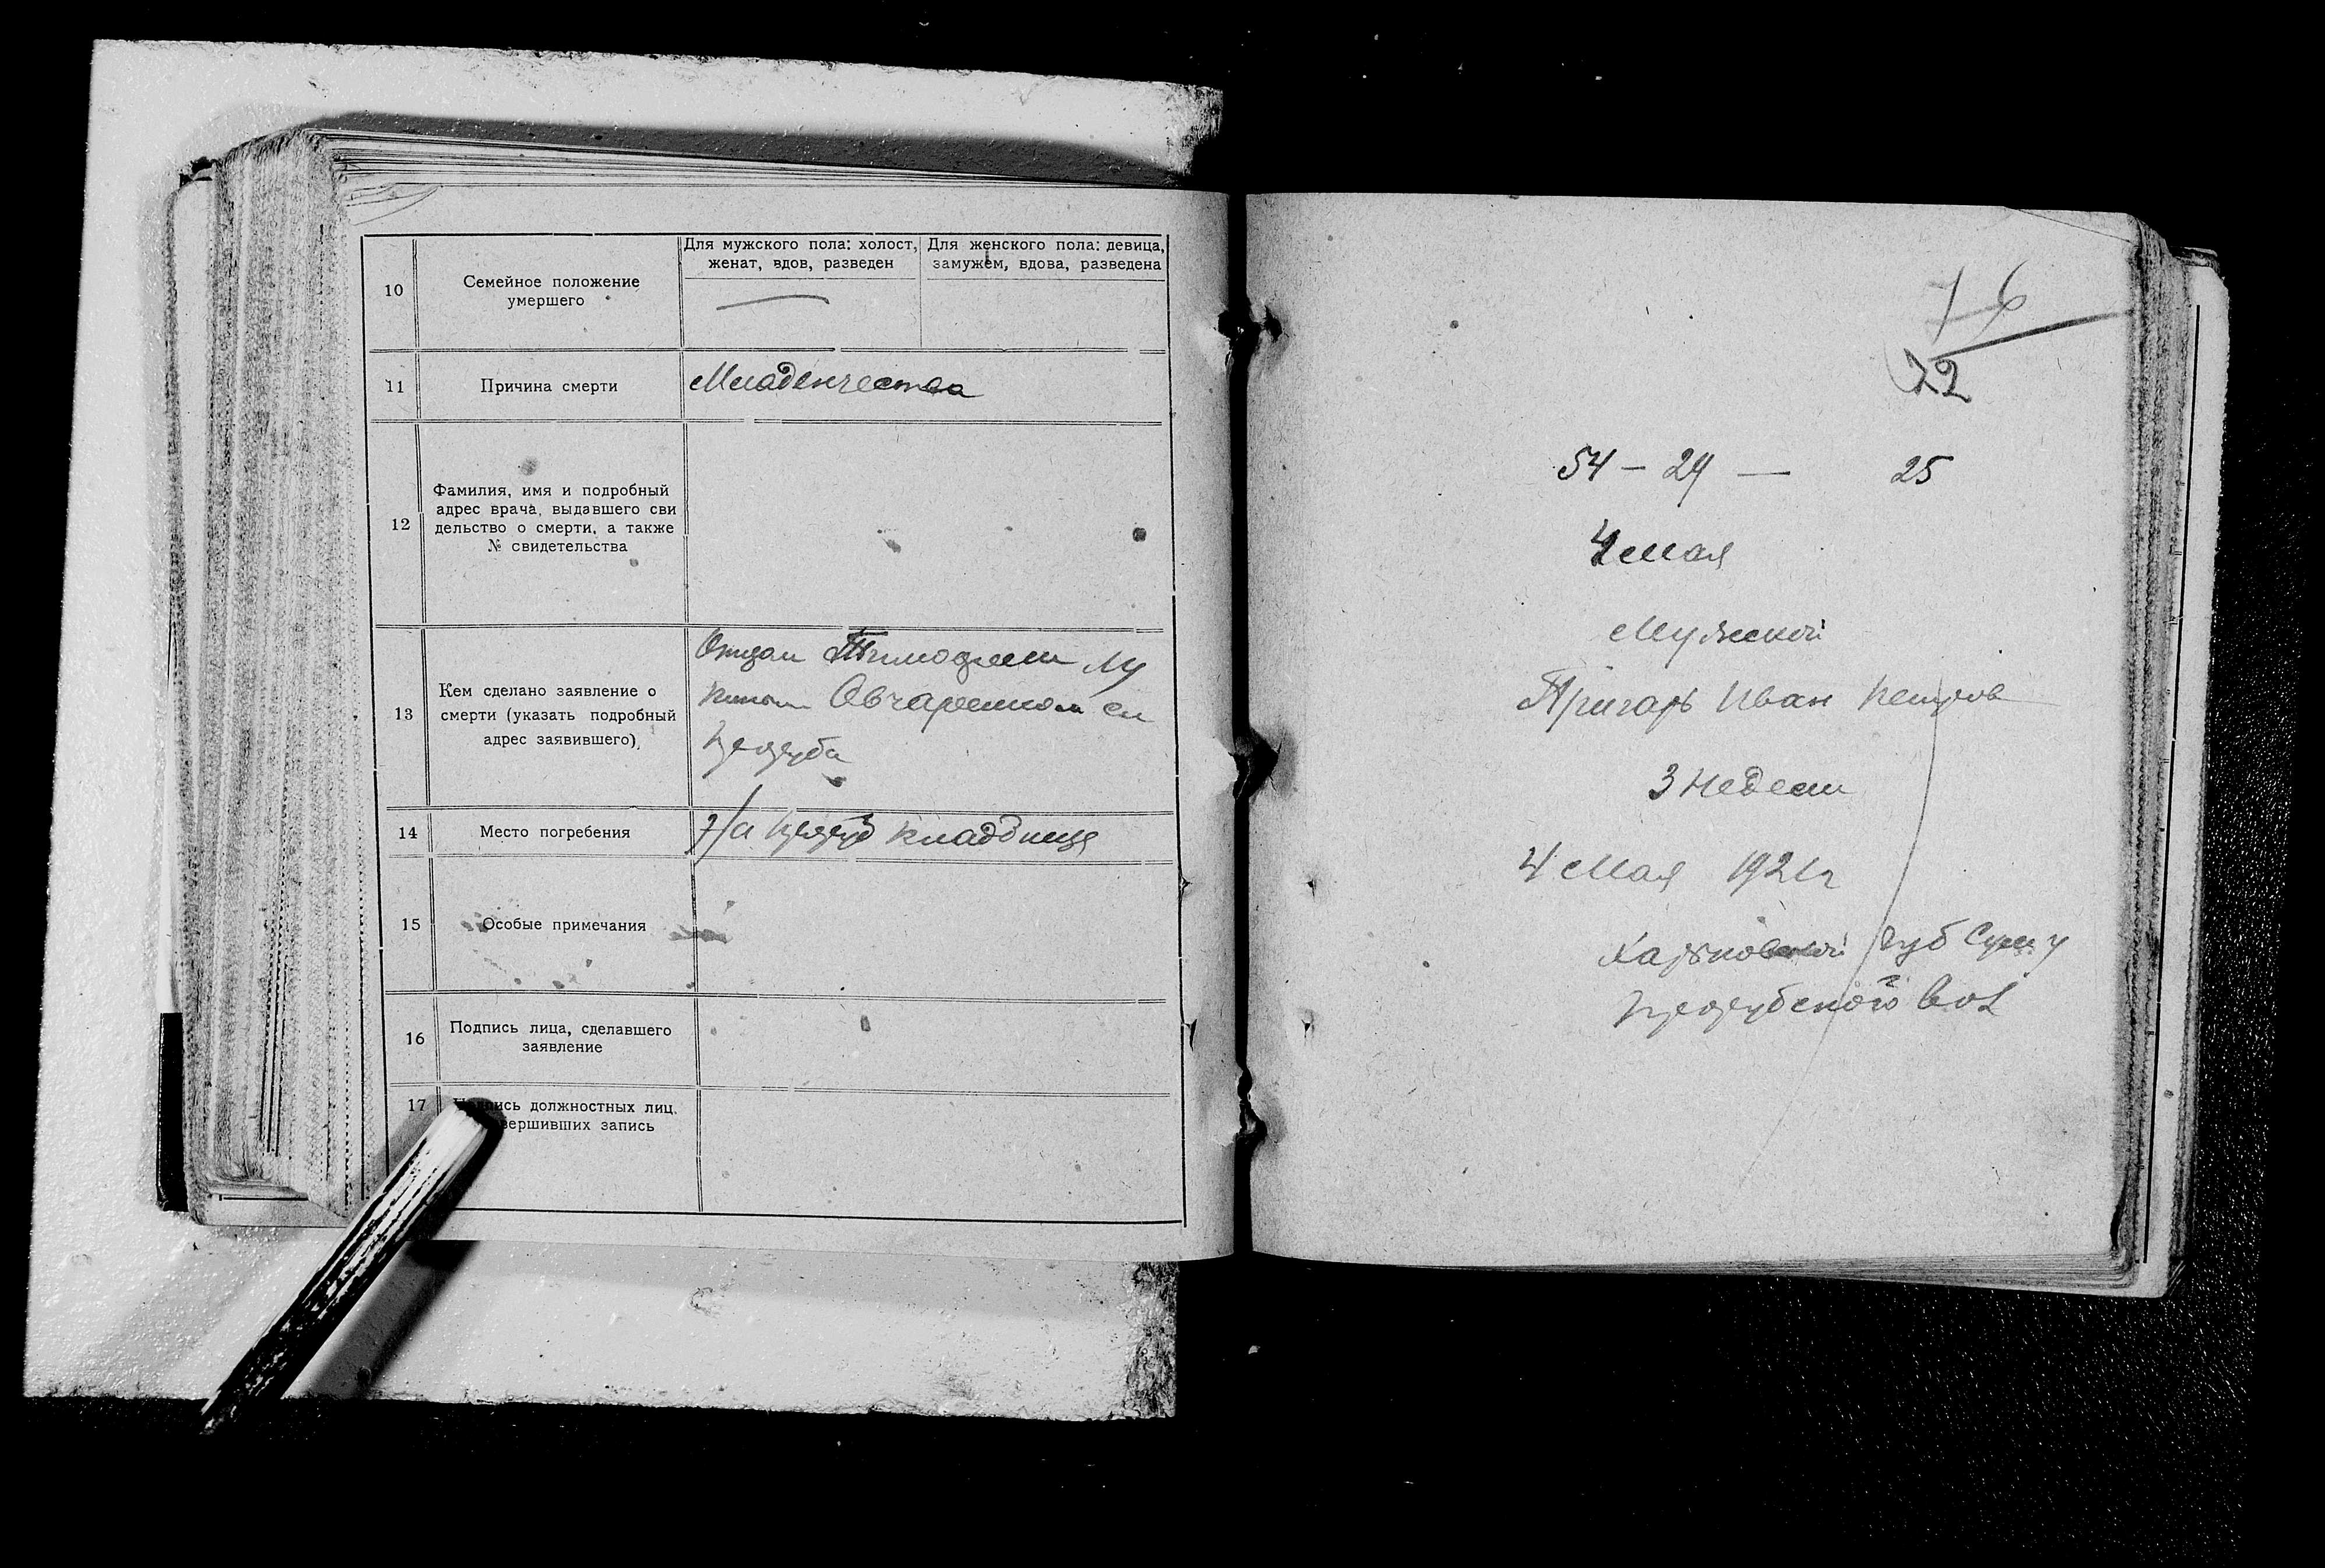 10
Семейное положение
умершего
Для мужского пола: холост,
женат, вдов, разведен
Для женского пола: девица,
замужем, вдова, разведена
11
Причина смерти
Младенчества
12
Фамилия, имя и подробный
адрес врача, выдавшего сви
дельство о смерти, а также
№ свидетельства
13
Кем сделано заявление о
смерти (указать подробный
адрес заявившего)
Отцом Тимофеем Лу
Овчаренком сл
14
Место погребения
На кладбище
15
Особые примечания
16
Подпись лица, сделавшего
заявление
17
Подпись должностных лиц,
вершивших запись
76
72
54 — 24 — 25
4 мая
Мужской
Пригарь Иван Петров
3 недели
4 Мая 1921г
Харьковской губ Сум у
вол